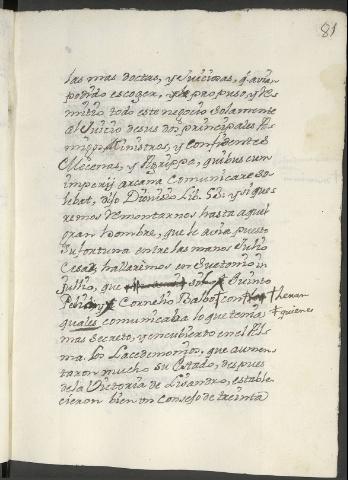 81
las mas doctas, y Juiciosas, q̃ avian
podido escoger, y le propuso, y Re
mitio todo este negocio solamente
al Juicio de sus dos principales A
migos Ministros, y Confidentes
Mecenas, y Agrippa, quibus cum
imperij arcana Comunicare so
lebat, dijo Dionisio Lib. 53. y si que
remos Remontarnos hasta aquel
gran hombre, que le avia puesto
su fortuna entre las manos Julio
Cesar, hallaremos en Suetonio in
Jullio, que Quinto
Pedio, y Cornelio Balbo eran
quales comunicaba lo que tenia + quienes
mas Secreto, y encubierto en el Al
ma. los Lacedemonios, que aumen
taron mucho su Estado, despues
de la Victoria de Lisandro, estable
cieron bien un Consejo de treinta